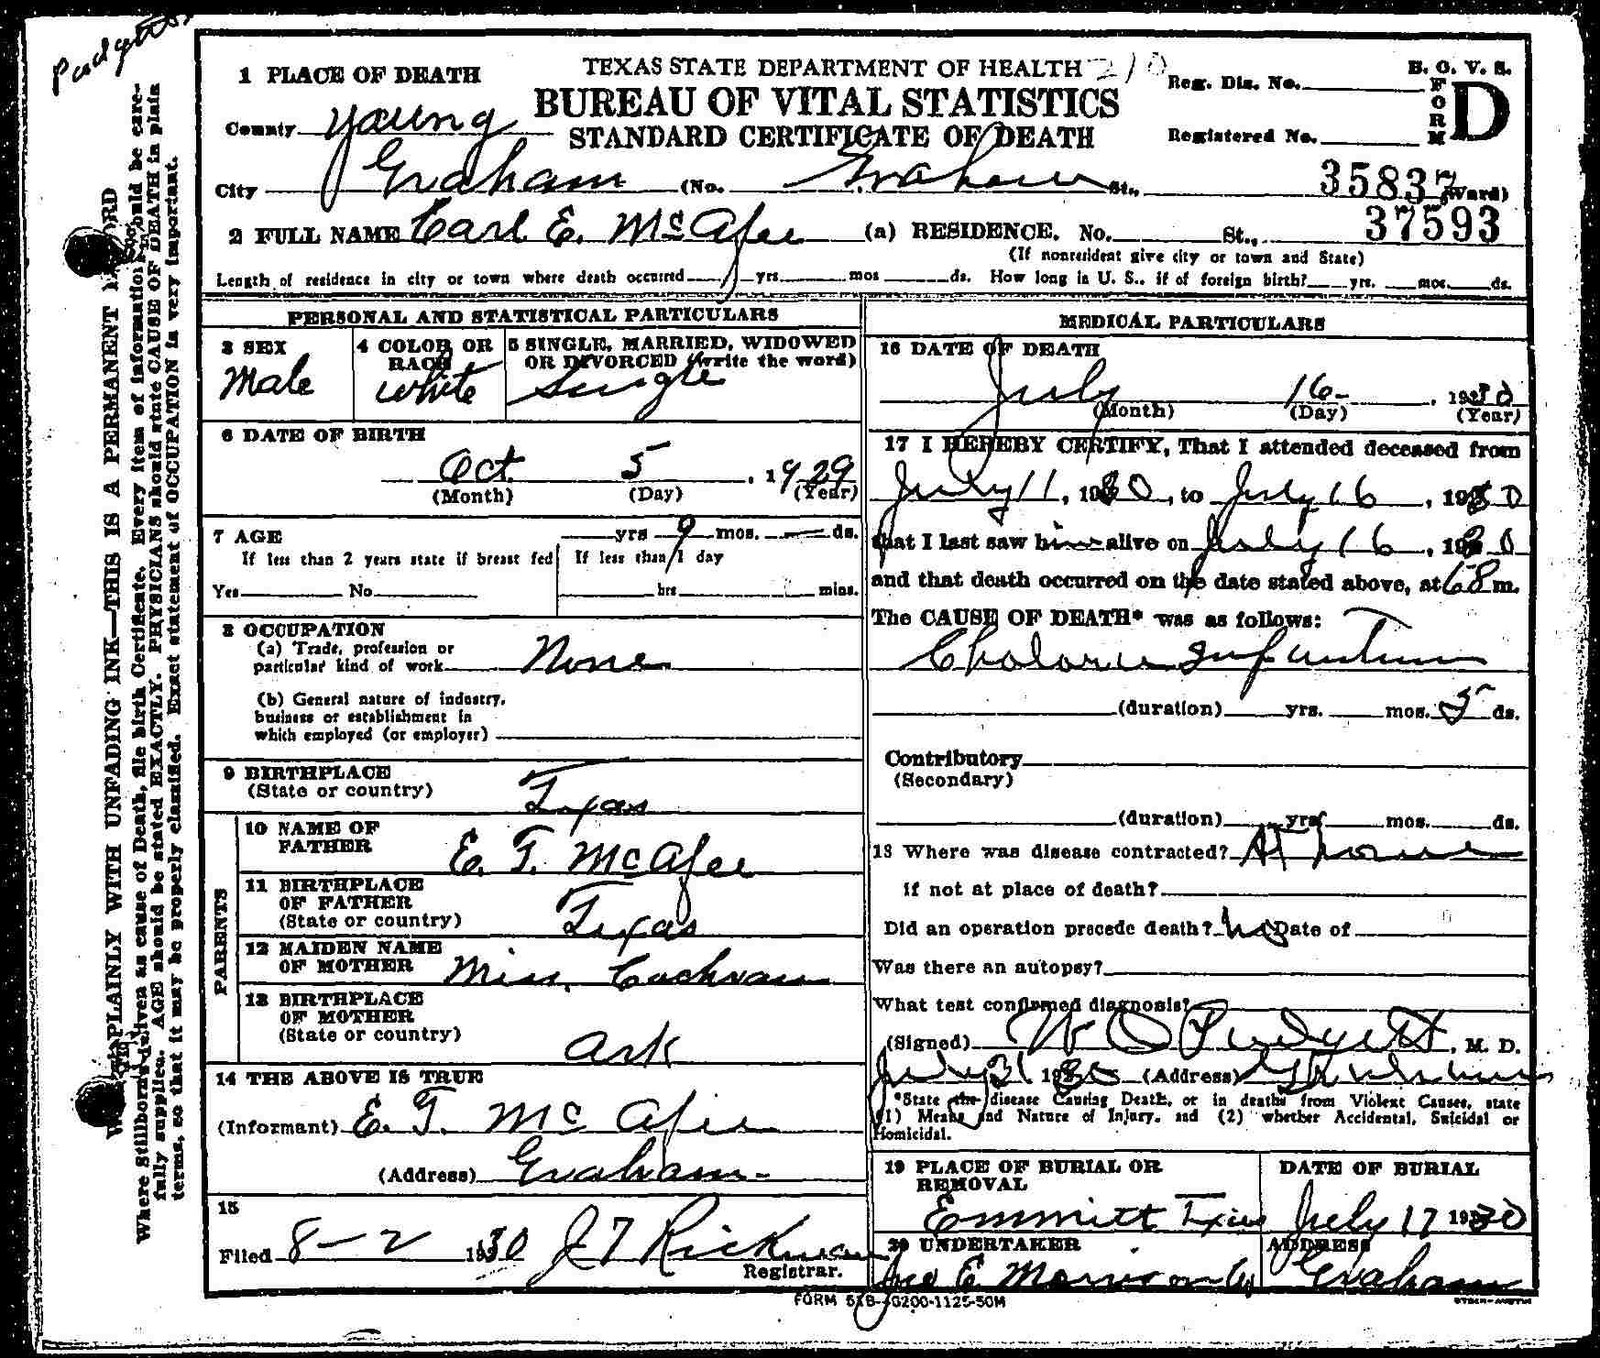 Padgett
TEXAS STATE DEPARTMENT OF HEALTH 210
BUREAU OF VITAL STATISTICS
STANDARD CERTIFICATE OF DEATH
Reg. Dis. No.
Registered No.
B. O. V. S.
FORM D
1 PLACE OF DEATH
County Young
City Graham (No. Graham St., 35837 Ward)
37593
2 FULL NAME Carl E. McAfee (a) RESIDENCE. No. St.,
(If nonresident give city or town and State)
Length of residence in city or town where death occurred yrs. mos. ds. How long in U. S.. if of foreign birth? yrs. mos. ds.
PERSONAL AND STATISTICAL PARTICULARS
3 SEX
Male
4 COLOR OR RACE
White
5 SINGLE, MARRIED, WIDOWED
OR DIVORCED (write the word)
Single
6 DATE OF BIRTH
Oct. 5, 1929
(Month) (Day) (Year)
7 AGE yrs 9 mos. — ds.
If less than 2 years state if breast fed
Yes No
If less than 1 day
hrs mins.
8 OCCUPATION
(a) Trade, profession or
particular kind of work None
(b) General nature of industry,
business or establishment in
which employed (or employer)
9 BIRTHPLACE
(State or country) Texas
PARENTS
10 NAME OF
FATHER E. T. McAfee
11 BIRTHPLACE
OF FATHER
(State or country) Texas
12 MAIDEN NAME
OF MOTHER Miss. Cochran
13 BIRTHPLACE
OF MOTHER
(State or country) Ark
14 THE ABOVE IS TRUE
(Informant) E. T. McAfee
(Address) Graham-
15
Filed 8-2 1930 J T Rickman
Registrar.
MEDICAL PARTICULARS
16 DATE OF DEATH
July 16-, 1930
(Month) (Day) (Year)
17 I HEREBY CERTIFY, That I attended deceased from
July 11, 1930, to July 16, 1930
that I last saw him alive on July 16, 1930
and that death occurred on the date stated above, at m.
The CAUSE OF DEATH* was as follows:
Cholora Infantum
(duration) yrs. mos. 5 ds.
Contributory
(Secondary)
(duration) yrs. mos. ds.
18 Where was disease contracted? At home
if not at place of death?
Did an operation precede death? No Date of
Was there an autopsy?
What test confirmed diagnosis?
(Signed) W O Padgett, M. D.
July 31 1930 (Address) Graham
*State the disease Causing Death, or in deaths from Violent Causes, state
(1) Means and Nature of Injury, and (2) whether Accidental, Suicidal or
Homicidal.
19 PLACE OF BURIAL OR
REMOVAL
Emmitt Texas
DATE OF BURIAL
July 17 1930
20 UNDERTAKER
E. Morrison Co
ADDRESS
Graham
FORM 51B-40200-1125-50M
PLAINLY WITH UNFADING INK—THIS IS A PERMANENT RECORD
Where Stillborn is given as cause of Death, file birth Certificate. Every item of information should be care-
fully supplied. AGE should be stated EXACTLY. PHYSICIANS should state CAUSE OF DEATH in plain
terms, so that it may be properly classified. Exact statement of OCCUPATION is very important.